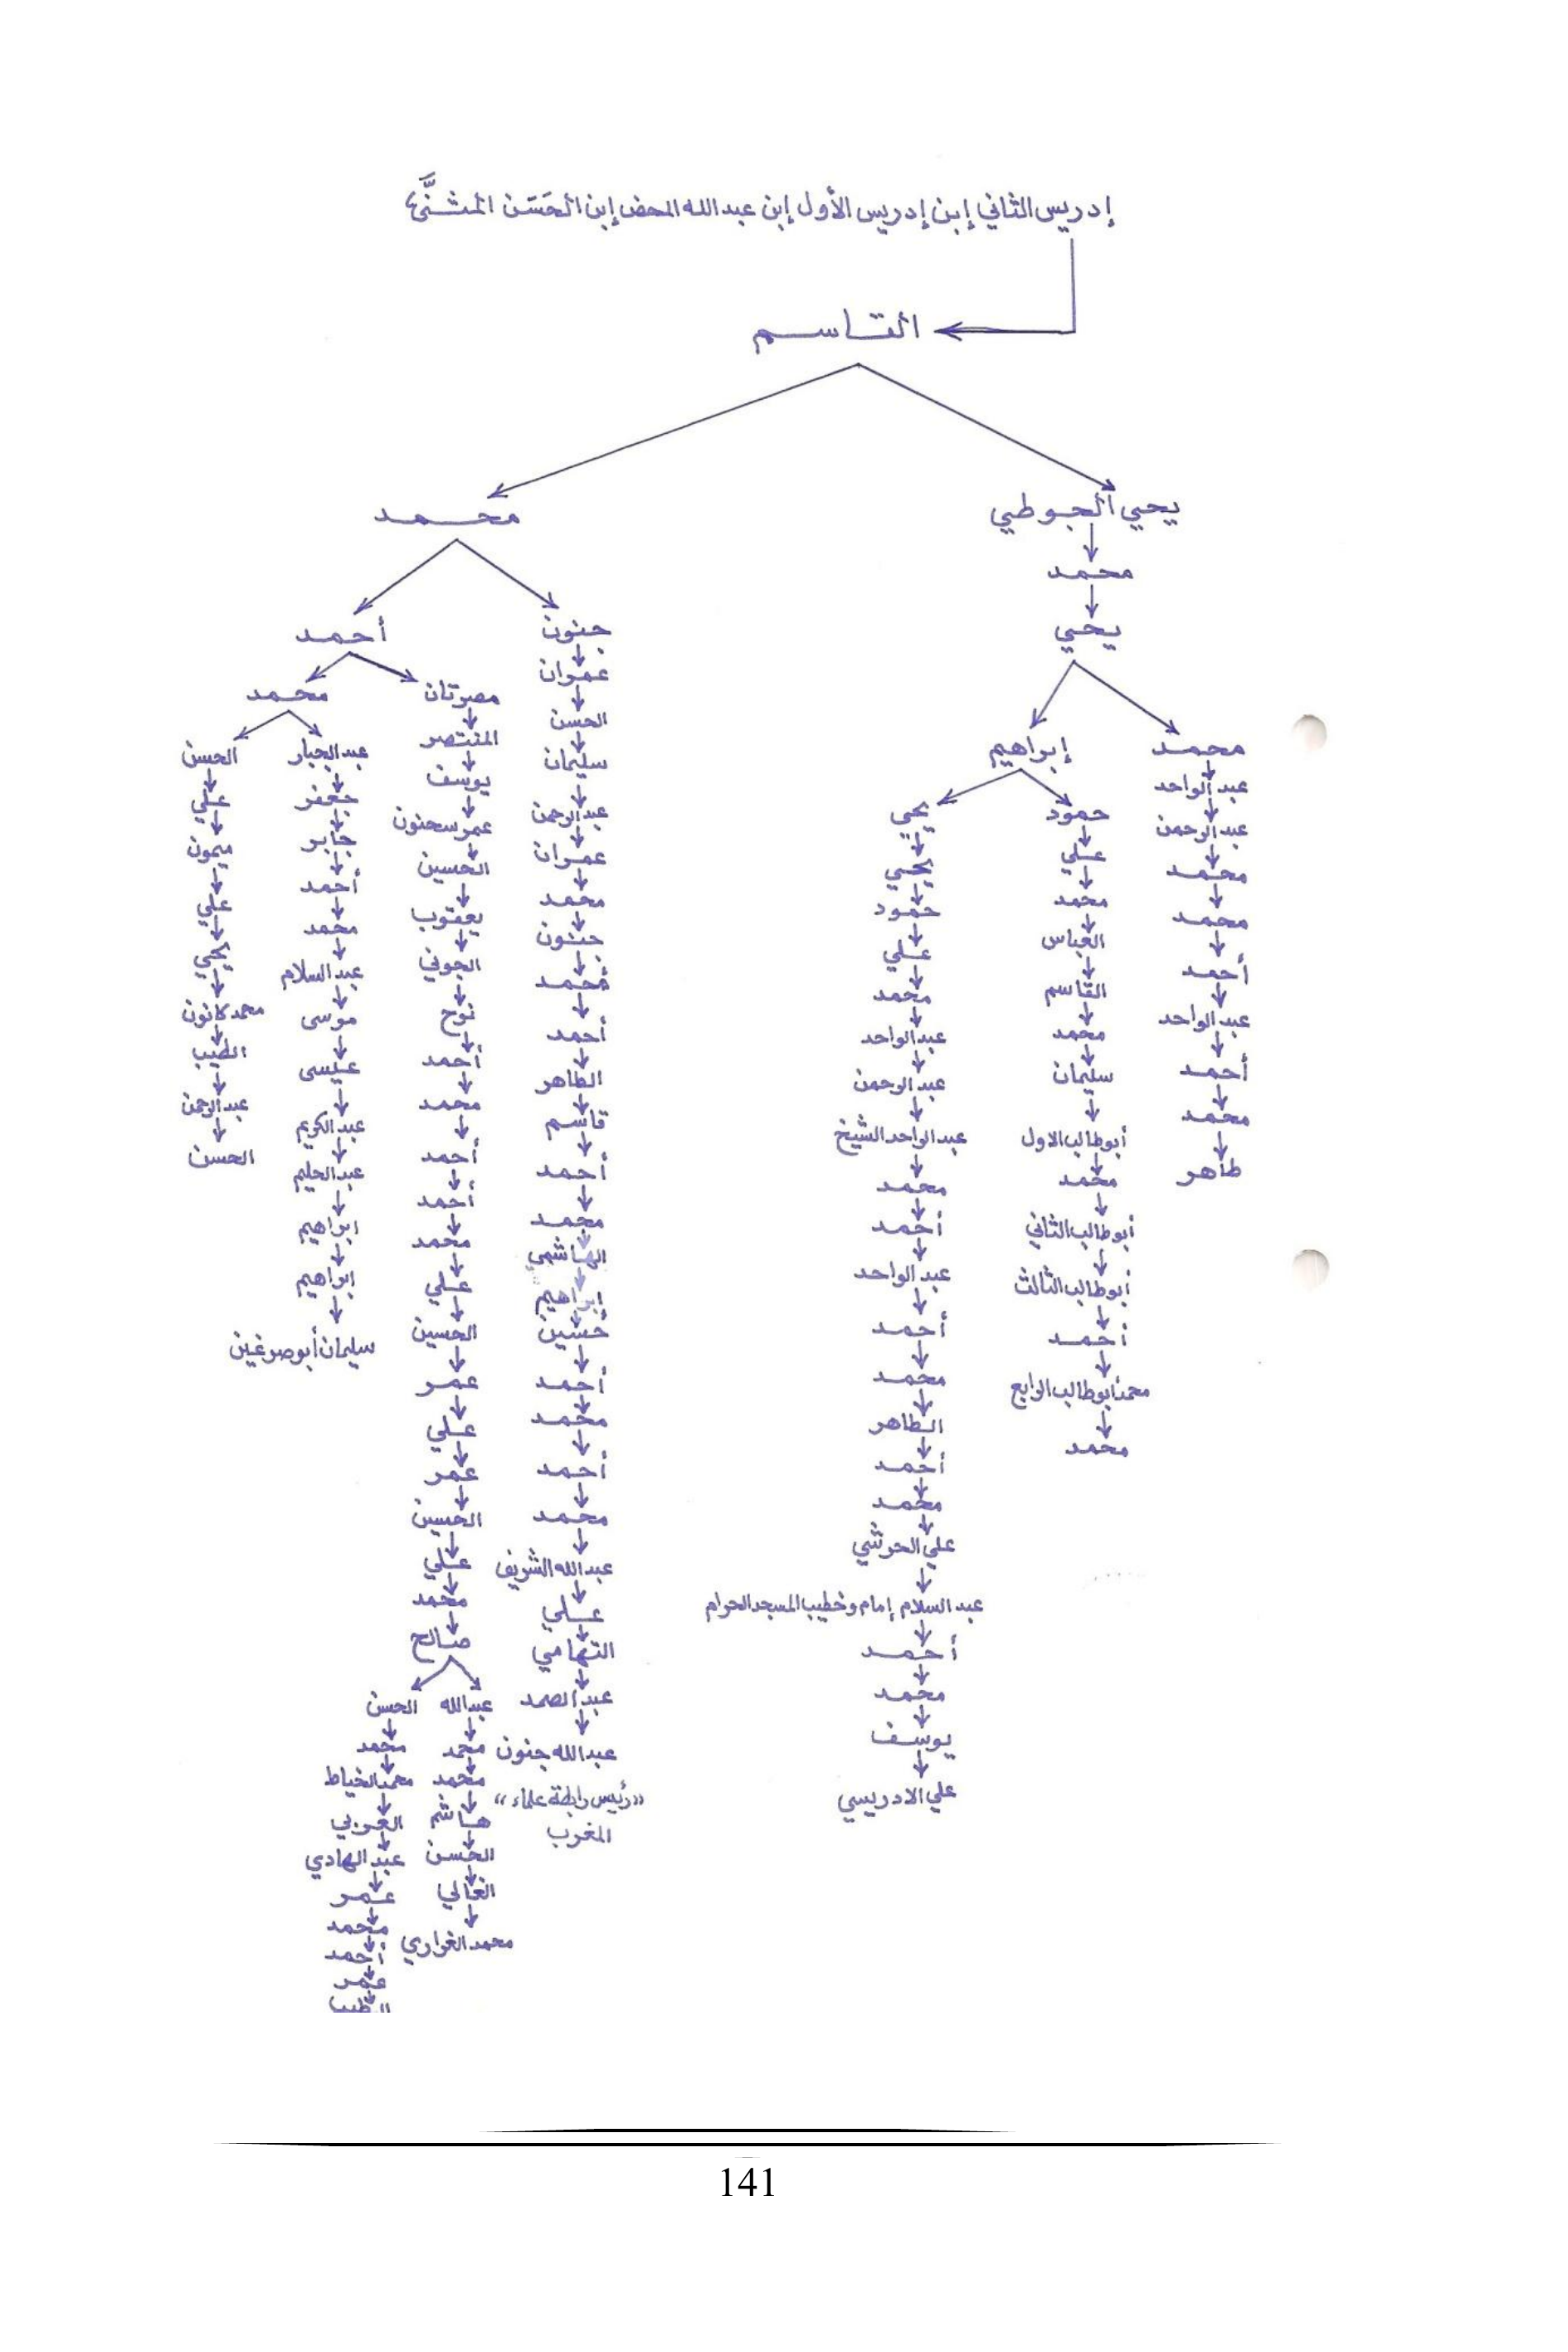 إدريس الثاني إبن إدريس الأول إبن عبد الله المحض إبن الحَسَن المثنَّى
القاسم
يحيي الجوطي
محمد
يحيي
محمد
عبد الواحد
عبد الرحمن
محمد
محمد
أحمد
عبد الواحد
أحمد
محمد
طاهر
إبراهيم
حمود
علي
محمد
العباس
القاسم
محمد
سليمان
أبو طالب الاول
محمد
أبو طالب الثاني
أبو طالب الثالث
أحمد
محمد أبو طالب الرابع
محمد
يحيي
يحيي
حمود
علي
محمد
عبد الواحد
عبد الرحمن
عبد الواحد الشيخ
محمد
أحمد
عبد الواحد
أحمد
محمد
الطاهر
أحمد
محمد
علي الحرشي
عبد السلام إمام وخطيب المسجد الحرام
أحمد
محمد
يوسف
علي الادريسي
محمد
جنون
عمران
الحسن
سليمان
عبد الرحمن
عمران
محمد
جنون
محمد
أحمد
الطاهر
قاسم
أحمد
محمد
الهاشمي
إبراهيم
حسين
أحمد
محمد
أحمد
محمد
عبد الله الشريف
علي
التهامي
عبد الصمد
عبد الله جنون
«رئيس رابطة علماء»
المغرب
أحمد
مصرتان
المنتصر
يوسف
عمر سحنون
الحسين
يعقوب
الجوني
نوح
أحمد
محمد
أحمد
أحمد
محمد
علي
الحسين
عمر
علي
عمر
الحسين
علي
محمد
صالح
عبد الله
محمد
محمد
هاشم
الحسن
الغالي
محمد الغراري
الحسن
محمد
محمد الخياط
العربي
عبد الهادي
عمر
محمد
أحمد
عمر
الطيب
محمد
عبد الجبار
جعفر
جابر
أحمد
محمد
عبد السلام
موسى
عيسى
عبد الكريم
عبد الحليم
ابراهيم
ابراهيم
سليمان أبو صرغين
الحسن
علي
ميمون
علي
يحيي
محمد كانون
الطيب
عبد الرحمن
الحسن
141